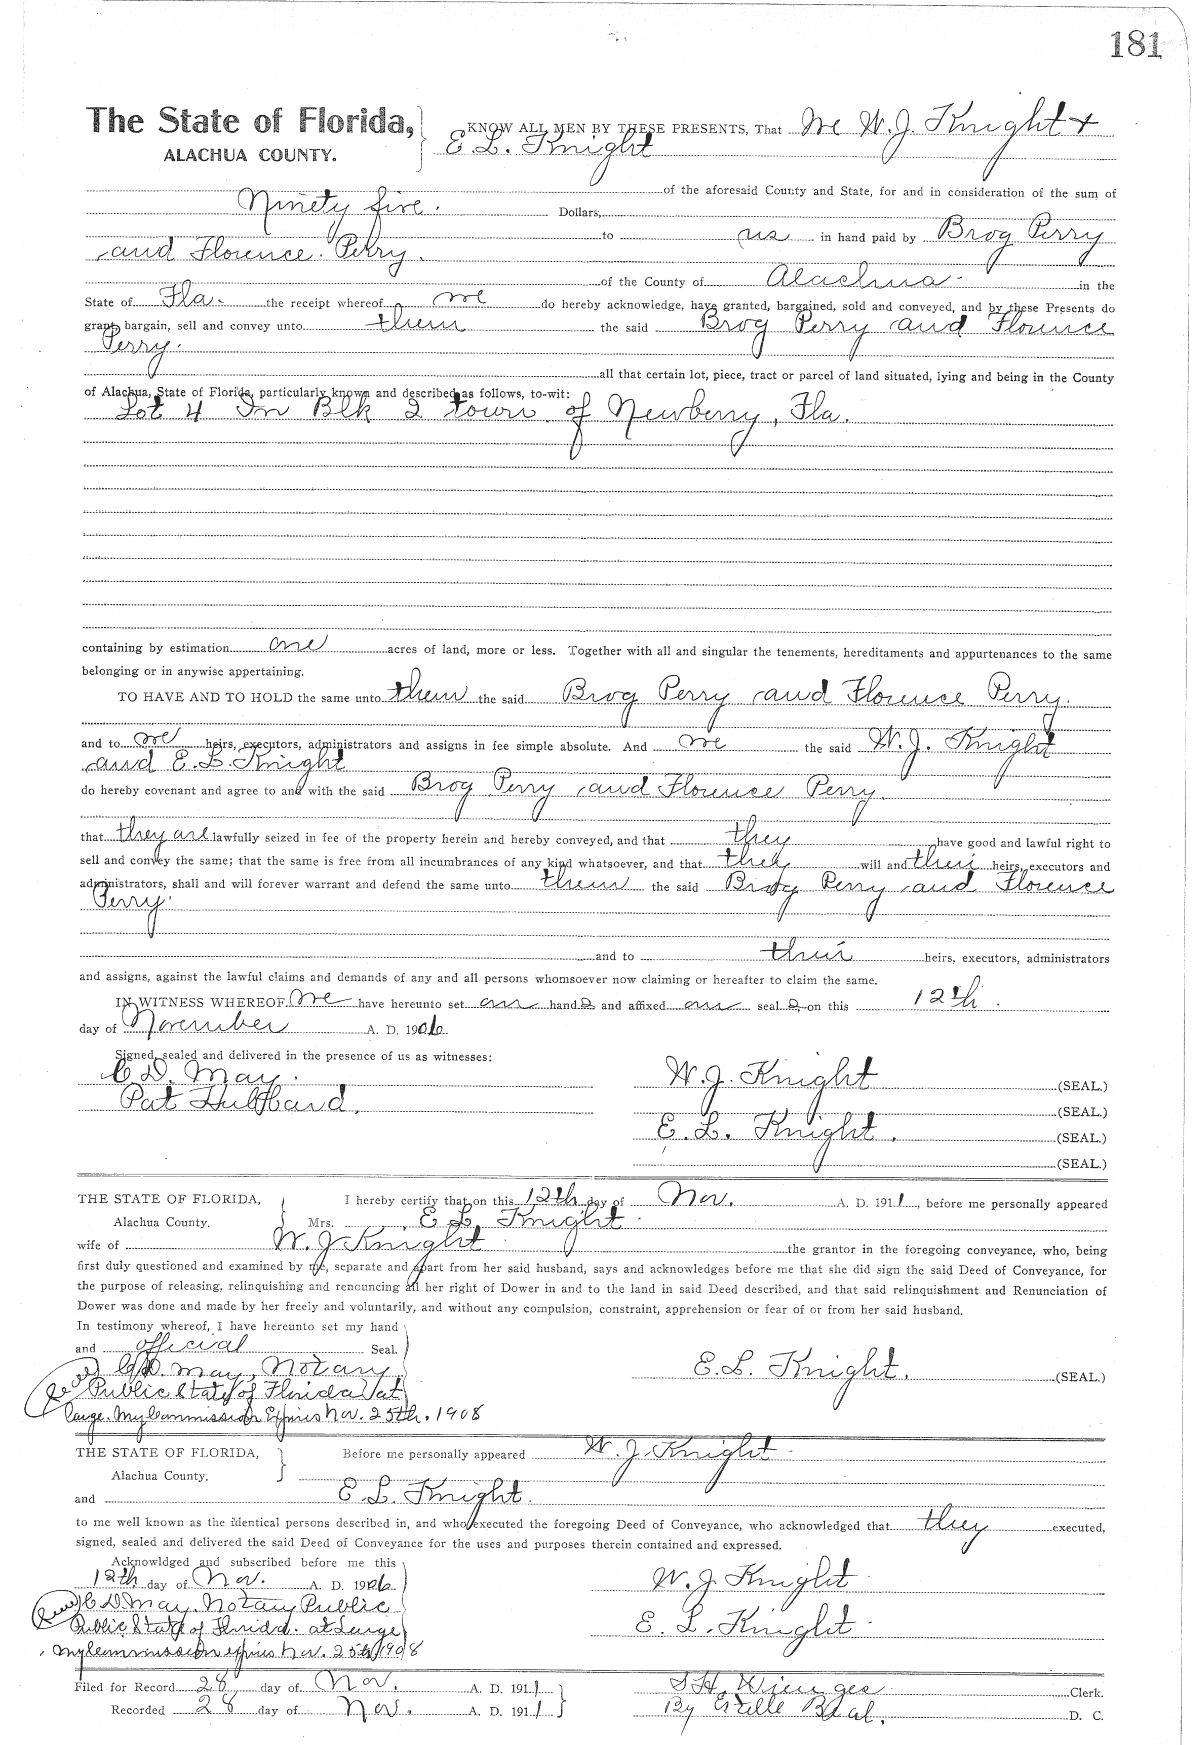 181
The State of Florida,
ALACHUA COUNTY.
KNOW ALL MEN BY THESE PRESENTS, That We W. J. Knight +
E. L. Knight
of the aforesaid County and State, for and in consideration of the sum of
Ninety five. Dollars,
to us in hand paid by Brog Perry
and Florence Perry.
of the County of Alachua in the
State of Fla. the receipt whereof we do hereby acknowledge, have granted, bargained, sold and conveyed, and by these Presents do
grant, bargain, sell and convey unto them the said Brog Perry and Florence
Perry.
all that certain lot, piece, tract or parcel of land situated, lying and being in the County
of Alachua, State of Florida, particularly known and described as follows, to-wit:
Lot 4 In Blk 2 town of Newberry, Fla.
containing by estimation one acres of land, more or less. Together with all and singular the tenements, hereditaments and appurtenances to the same
belonging or in anywise appertaining.
TO HAVE AND TO HOLD the same unto them the said Brog Perry and Florence Perry.
and to we heirs, executors, administrators and assigns in fee simple absolute. And we the said W. J. Knight
and E. L. Knight
do hereby covenant and agree to and with the said Brog Perry and Florence Perry.
that they are lawfully seized in fee of the property herein and hereby conveyed, and that they have good and lawful right to
sell and convey the same; that the same is free from all incumbrances of any kind whatsoever, and that they will and their heirs, executors and
administrators, shall and will forever warrant and defend the same unto them the said Brog Perry and Florence
Perry.
and to their heirs, executors, administrators
and assigns, against the lawful claims and demands of any and all persons whomsoever now claiming or hereafter to claim the same.
IN WITNESS WHEREOF, We have hereunto set our hands and affixed our seals, on this 12th.
day of November A. D. 1906.
Signed, sealed and delivered in the presence of us as witnesses:
C D. May. W. J. Knight (SEAL.)
Pat Hubbard. (SEAL.)
E. L. Knight. (SEAL.)
(SEAL.)
THE STATE OF FLORIDA, I hereby certify that on this 12th day of Nov. A. D. 1911, before me personally appeared
Alachua County. Mrs. E. L. Knight
wife of W. J Knight the grantor in the foregoing conveyance, who, being
first duly questioned and examined by me, separate and apart from her said husband, says and acknowledges before me that she did sign the said Deed of Conveyance, for
the purpose of releasing, relinquishing and renouncing all her right of Dower in and to the land in said Deed described, and that said relinquishment and Renunciation of
Dower was done and made by her freely and voluntarily, and without any compulsion, constraint, apprehension or fear of or from her said husband.
In testimony whereof, I have hereunto set my hand
and official Seal.
(Seal) C. D. May, Notary E. L. Knight. (SEAL.)
Public State of Florida at
large. My Commission Expires Nov. 25th. 1908
THE STATE OF FLORIDA, Before me personally appeared W. J. Knight
Alachua County.
and E L. Knight.
to me well known as the identical persons described in, and who executed the foregoing Deed of Conveyance, who acknowledged that they executed,
signed, sealed and delivered the said Deed of Conveyance for the uses and purposes therein contained and expressed.
Acknowldged and subscribed before me this
12th day of Nov. A. D. 1906. W. J Knight
(Seal) C D May. Notary Public
Public State of Florida. at Large E. L. Knight
My Commission expires Nov. 25th 1908
Filed for Record 28 day of Nov. A. D. 1911 S. H. Wienges Clerk.
Recorded 28 day of Nov. A. D. 1911 By Estelle Beal. D. C.